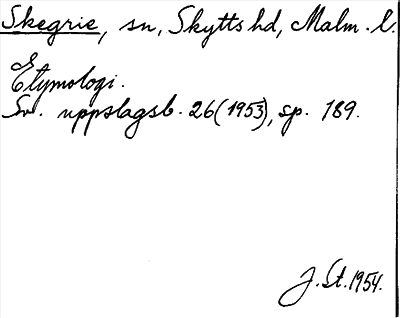 Skegrie, sn, Skytts hd, Malm. l.
Etymologi.
Sv. uppslagsb. 26 (1953), sp. 189.
J. St. 1954.